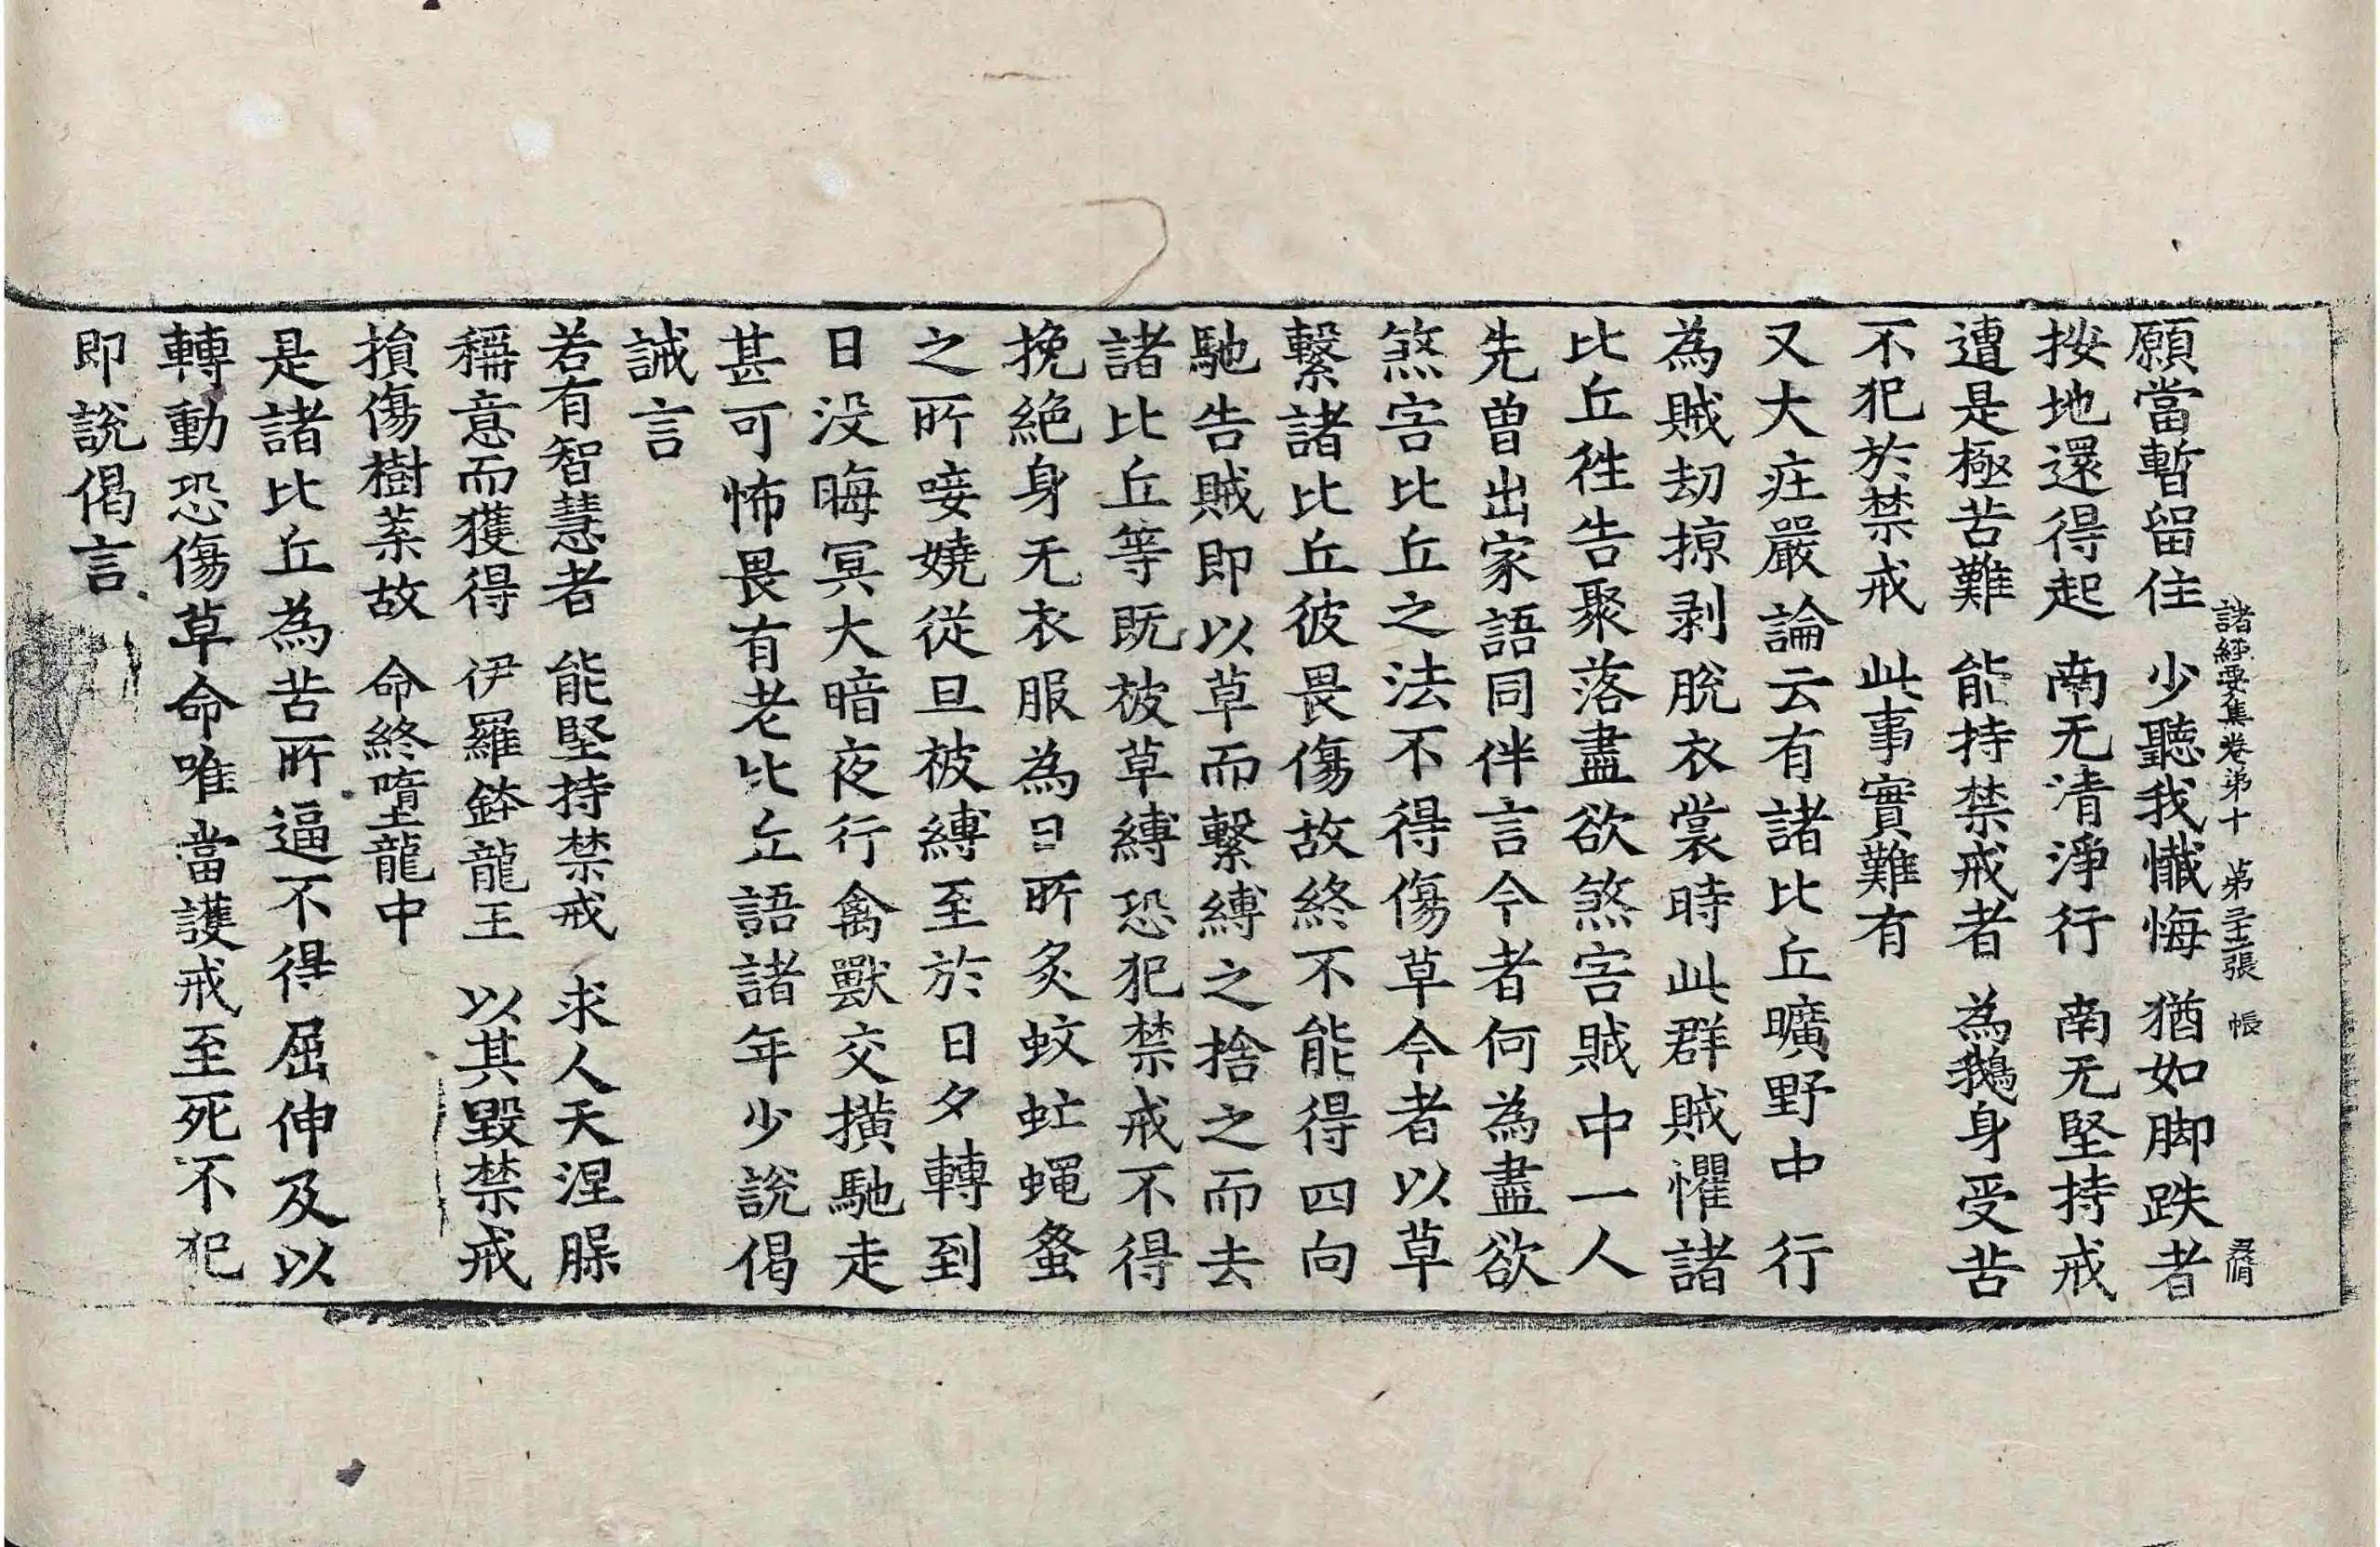 諸經要集卷第十 第三十一張 帳
願當暫留住 少聽我懺悔 猶如脚跌者
按地還得起 南无清淨行 南无堅持戒
遭是極苦難 能持禁戒者 為鵝身受苦
不犯於禁戒 此事實難有
又大疘嚴論云有諸比丘曠野中行
為賊劫掠剥脫衣裳時此群賊懼諸
比丘徃告聚落盡欲煞害賊中一人
先曾出家語同伴言今者何為盡欲
煞害比丘之法不得傷草今者以草
繫諸比丘彼畏傷故終不能得四向
馳告賊即以草而繫縛之捨之而去
諸比丘等既被草縛恐犯禁戒不得
挽絕身无衣服為日所炙蚊虻蠅蚤
之所唼嬈從旦被縛至於日夕轉到
日没晦冥大暗夜行禽獸交撗馳走
甚可怖畏有老比丘語諸年少說偈
誡言
若有智慧者 能堅持禁戒 求人天涅槃
稱意而獲得 伊羅鉢龍王 以其毀禁戒
損傷樹葉故 命終墮龍中
是諸比丘為苦所逼不得屈伸及以
轉動恐傷草命唯當護戒至死不犯
即說偈言